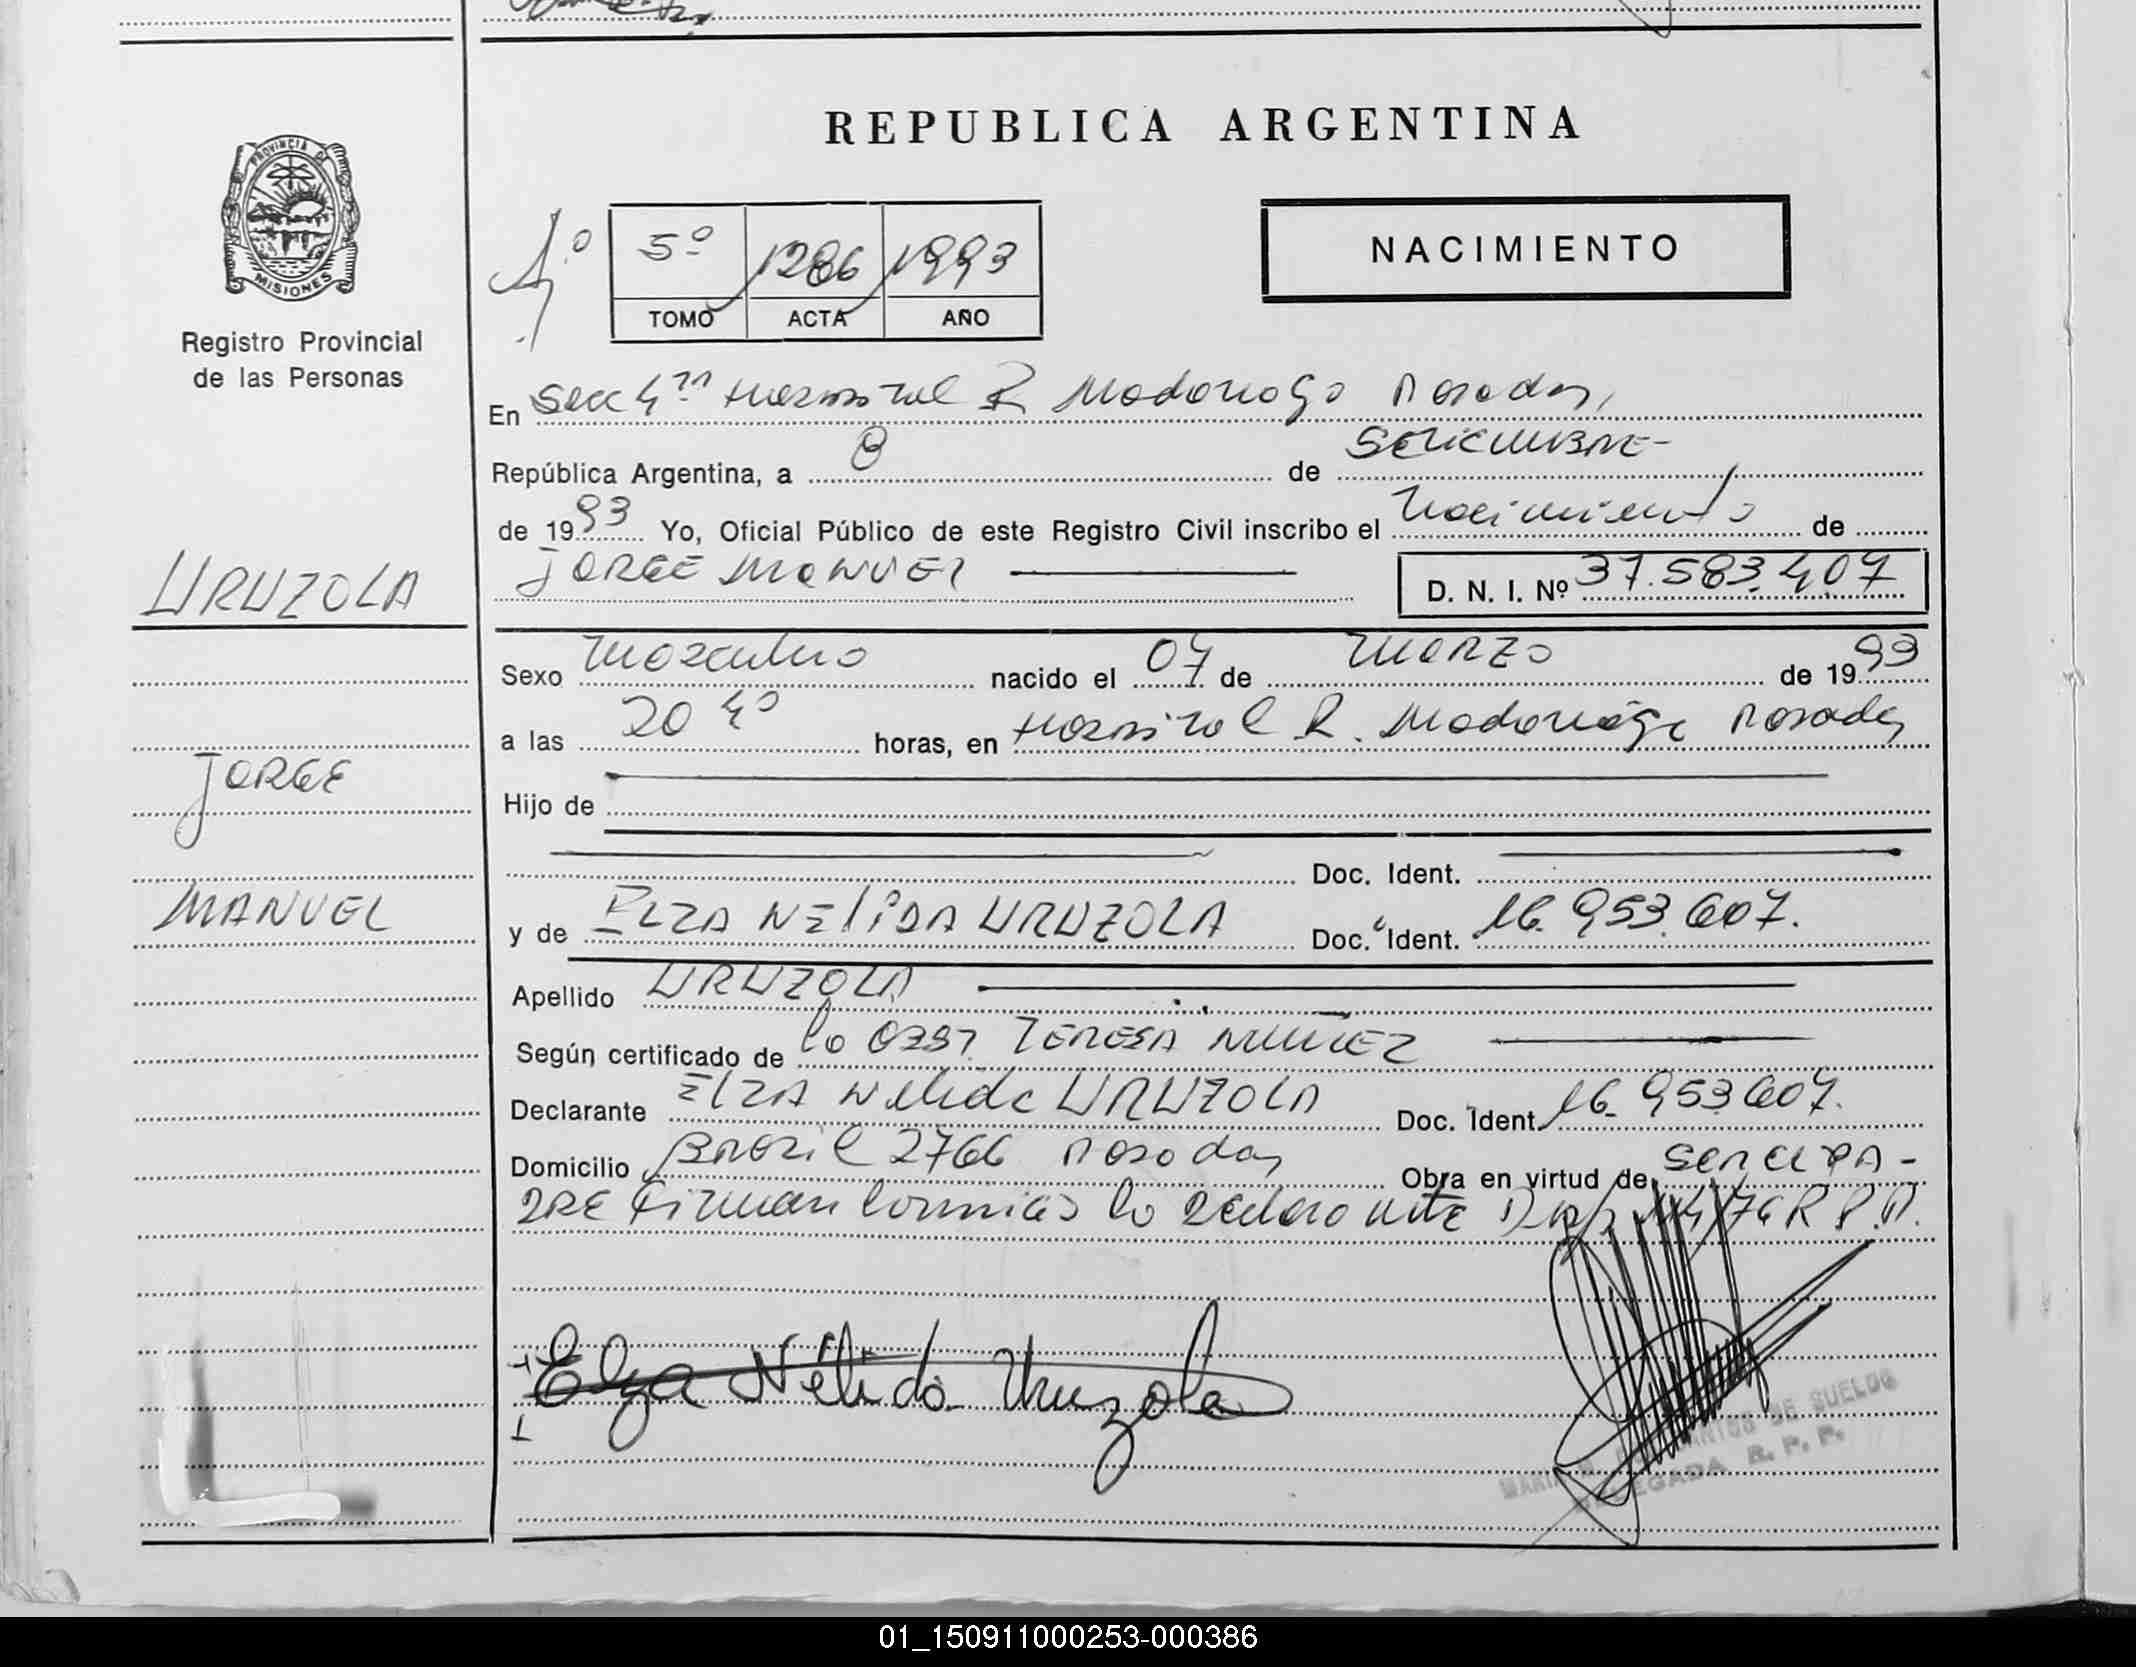 REPUBLICA ARGENTINA
PROVINCIA DE
MISIONES
Registro Provincial
de las Personas
5º 1286 1993
TOMO ACTA AÑO
NACIMIENTO
En Secc 4ta Hospital R Madariaga Posadas,
República Argentina, a 8 de SETIEMBRE-
de 1993 Yo, Oficial Público de este Registro Civil inscribo el Nacimiento de
URUZOLA
JORGE MANUEL
D. N. I. Nº 37.583.407
Sexo Masculino nacido el 07 de MARZO de 1993
a las 20 40 horas, en Hospital R. Madariaga Posadas
JORGE
Hijo de
Doc. Ident.
MANUEL
y de ELZA NELIDA URUZOLA Doc. Ident. 16.953.607.
Apellido URUZOLA
Según certificado de la OBST TERESA NUÑEZ
Declarante ELZA Nelida URUZOLA Doc. Ident. 16.953607.
Domicilio BRAZIL 2766 Posadas Obra en virtud de SER EL PA-
DRE Firman conmigo la declarante Disp 14/76 R P.P.
Elza Nélida Uruzola
DE SUELDO
DELEGADA R. P. P.
01_150911000253-000386